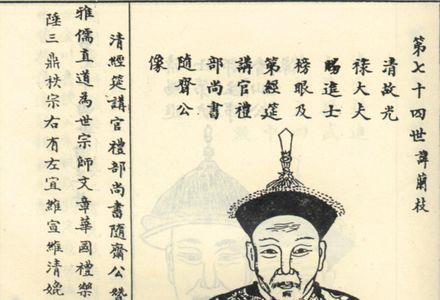 第七十四世諱蘭枝
清故光
祿大夫
賜進士
榜眼及
第經筵
講官禮
部尚書
隨齋公
像
清經筵講官禮部尚書隨齋公贊
雅儒直道為世宗師文章華國禮樂
陞三鼎秩宗右有左宜維宣維清㛹